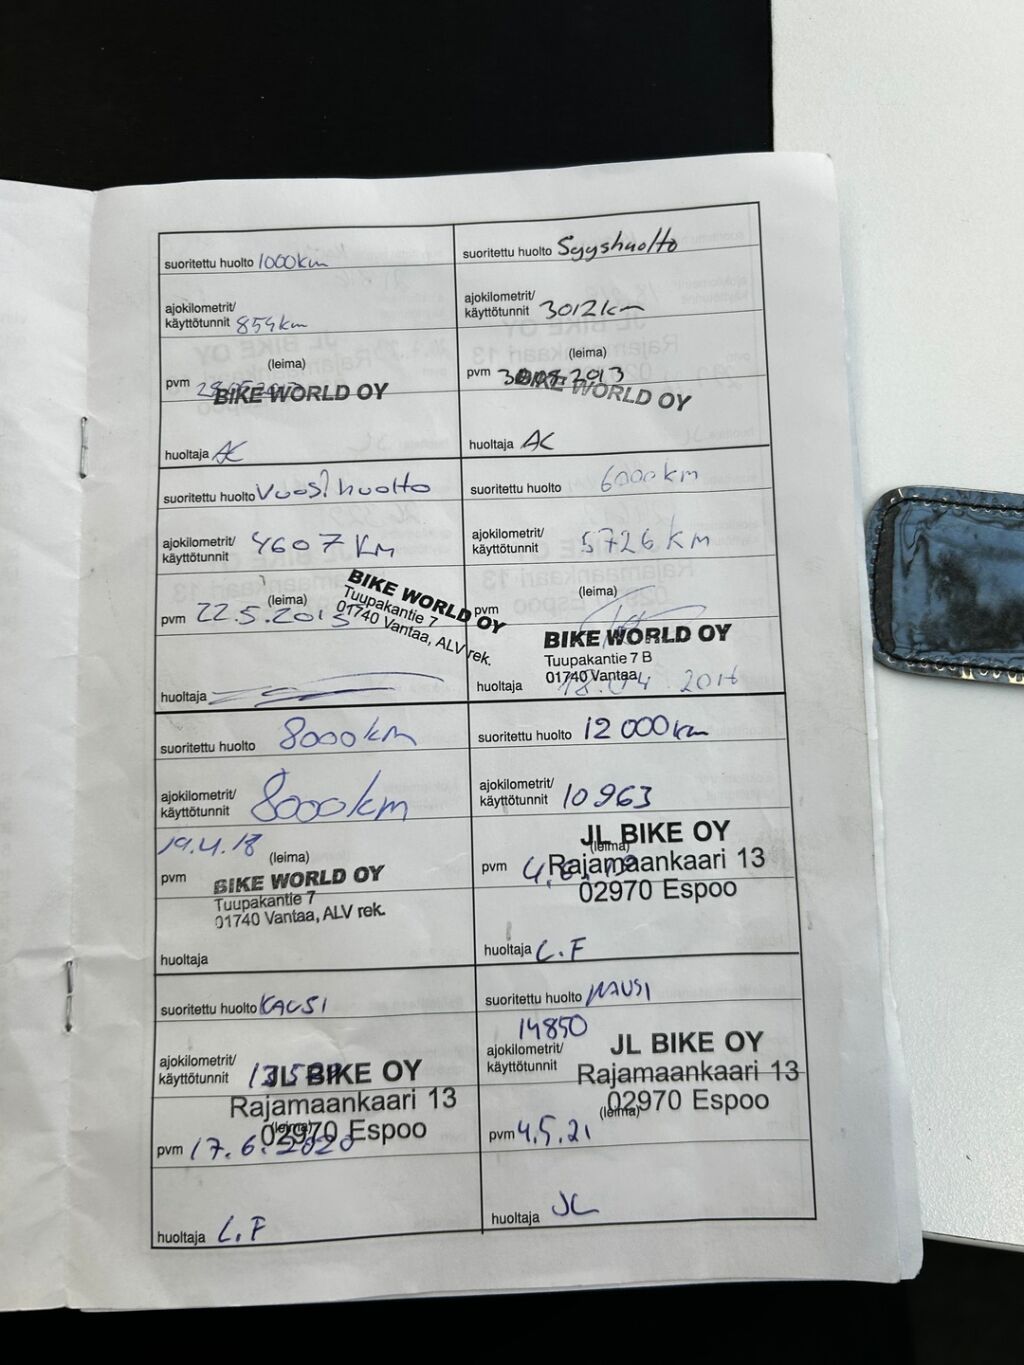 suoritettu huolto 1000km
ajokilometrit/
käyttötunnit 854km
(leima)
pvm
BIKE WORLD OY
huoltaja AC
suoritettu huolto Syyshuolto
ajokilometrit/
käyttötunnit 3012km
(leima)
pvm 30.08.2013
BIKE WORLD OY
huoltaja AC
suoritettu huolto Vuosihuolto
ajokilometrit/
käyttötunnit 4607 km
(leima)
pvm 22.5.2015
BIKE WORLD OY
Tuupakantie 7
01740 Vantaa, ALV rek.
huoltaja
suoritettu huolto 6000km
ajokilometrit/
käyttötunnit 5726 km
(leima)
pvm
BIKE WORLD OY
Tuupakantie 7 B
01740 Vantaa
huoltaja 18.04.2016
suoritettu huolto 8000km
ajokilometrit/
käyttötunnit 8000km
19.4.18
(leima)
pvm
BIKE WORLD OY
Tuupakantie 7
01740 Vantaa, ALV rek.
huoltaja
suoritettu huolto 12 000km
ajokilometrit/
käyttötunnit 10963
JL BIKE OY
(leima)
pvm
Rajamaankaari 13
02970 Espoo
huoltaja L.F
suoritettu huolto KAUSI
ajokilometrit/
käyttötunnit
JL BIKE OY
Rajamaankaari 13
(leima)
02970 Espoo
pvm 17.6.2020
huoltaja L.F
suoritettu huolto KAUSI
14850
ajokilometrit/
käyttötunnit
JL BIKE OY
Rajamaankaari 13
02970 Espoo
(leima)
pvm 4.5.21
huoltaja JL